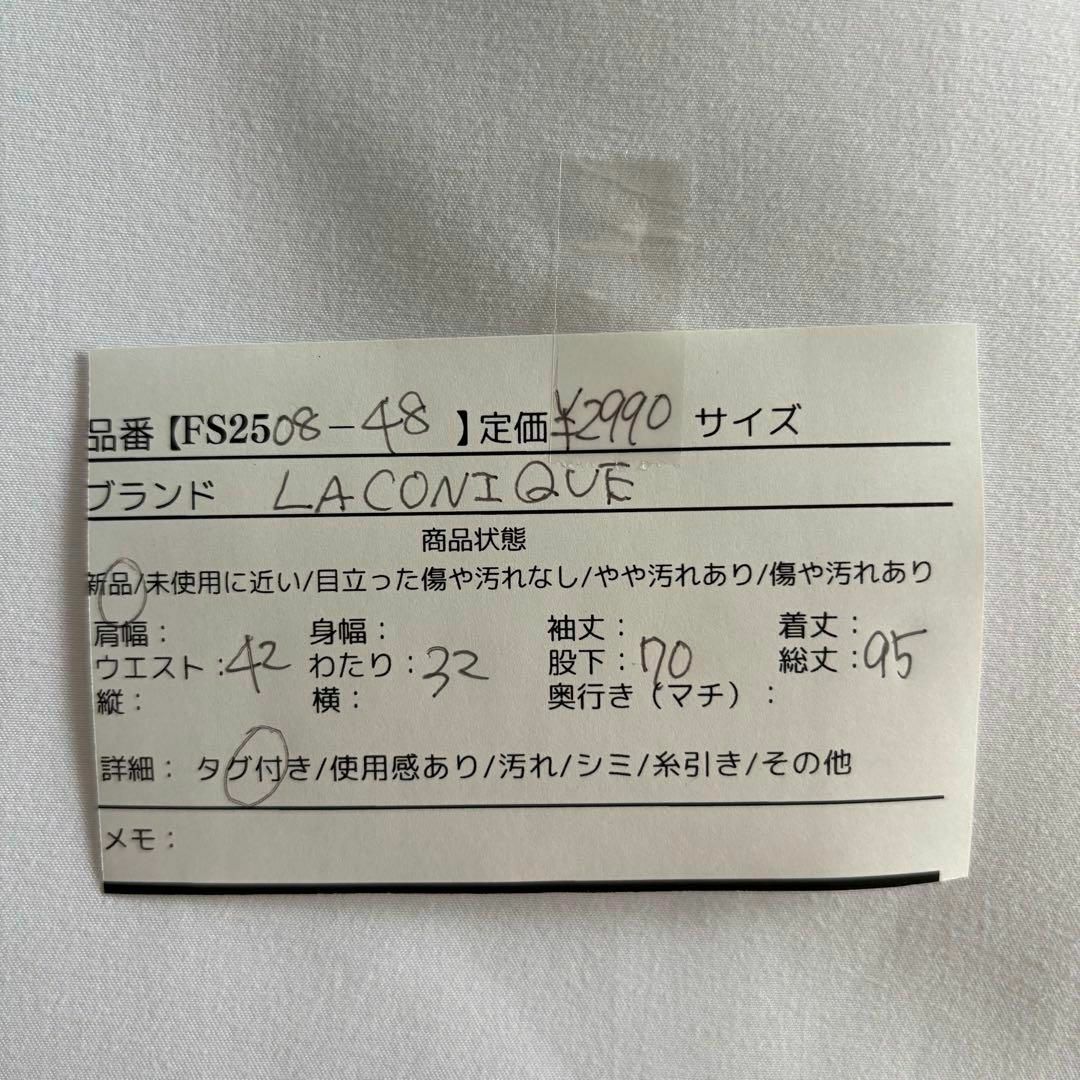 品番【FS2508-48 】定価¥2990 サイズ
ブランド LACONIQUE
商品状態
新品/未使用に近い/目立った傷や汚れなし/やや汚れあり/傷や汚れあり
肩幅： 身幅： 袖丈： 着丈：
ウエスト：42 わたり：32 股下：70 総丈：95
縦： 横： 奥行き（マチ）：
詳細： タグ付き/使用感あり/汚れ/シミ/糸引き/その他
メモ：